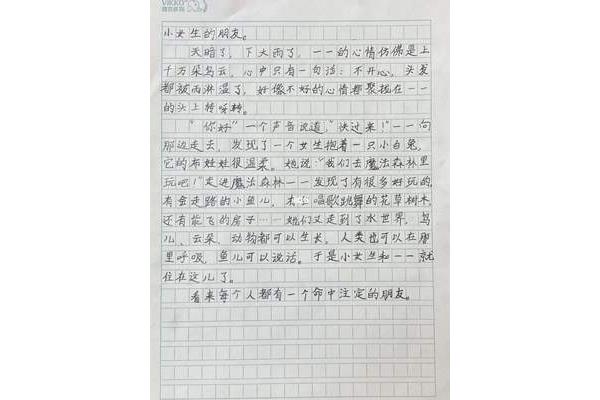 VIKKO
小女生的朋友。
天暗了，下大雨了，一一的心情仿佛是上
千万朵乌云，心中只有一句话：不开心，头发
都被雨淋湿了，好像不好的心情都聚拢在一一
的头上转呀转。
“你好”一个声音说道，“快过来！”一一向
那边走去，发现了一个女生抱着一只小白兔，
它的布娃娃很温柔。她说：“我们去魔法森林里
玩吧！”走进魔法森林一一发现了有很多好玩的，
有会走路的小鱼儿，有会唱歌跳舞的花草树木，
还有能飞的房子…一她们又走到了水世界，鸟
儿、云朵、动物都可以生长，人类也可以在那
里呼吸，鱼儿可以说话。于是小女生和一一就
住在这儿了。
看来每个人都有一个命中注定的朋友。